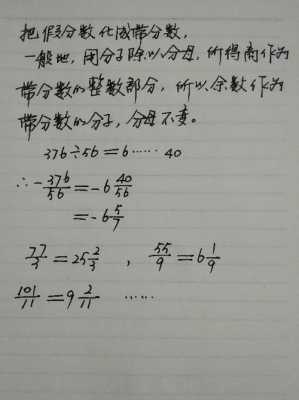 把假分数化成带分数,
一般地,用分子除以分母,所得商作为
带分数的整数部分,所以余数作为
带分数的分子,分母不变。
376÷56=6……40
∴-376/56=-6 40/56
=-6 5/7
77/3=25 2/3 , 55/9=6 1/9
101/11=9 2/11 ……